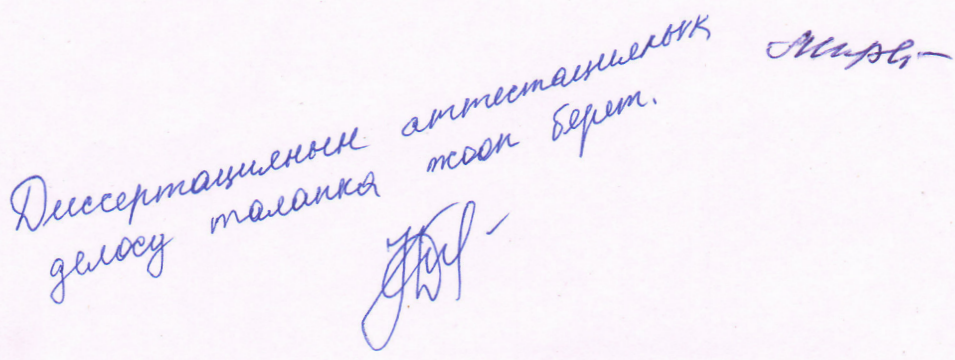 Диссертациянын аттестациялык
делосу талапка жооп берет.